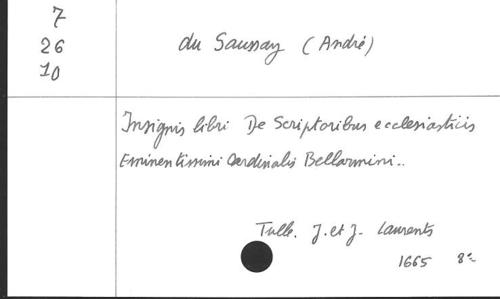 7
26
10
du Saussay (André)
Insignis libri De Scriptoribus ecclesiasticis
Eminentissimi Cardinalis Bellarmini..
Tulle. J. et J. Laurents
1665 8º